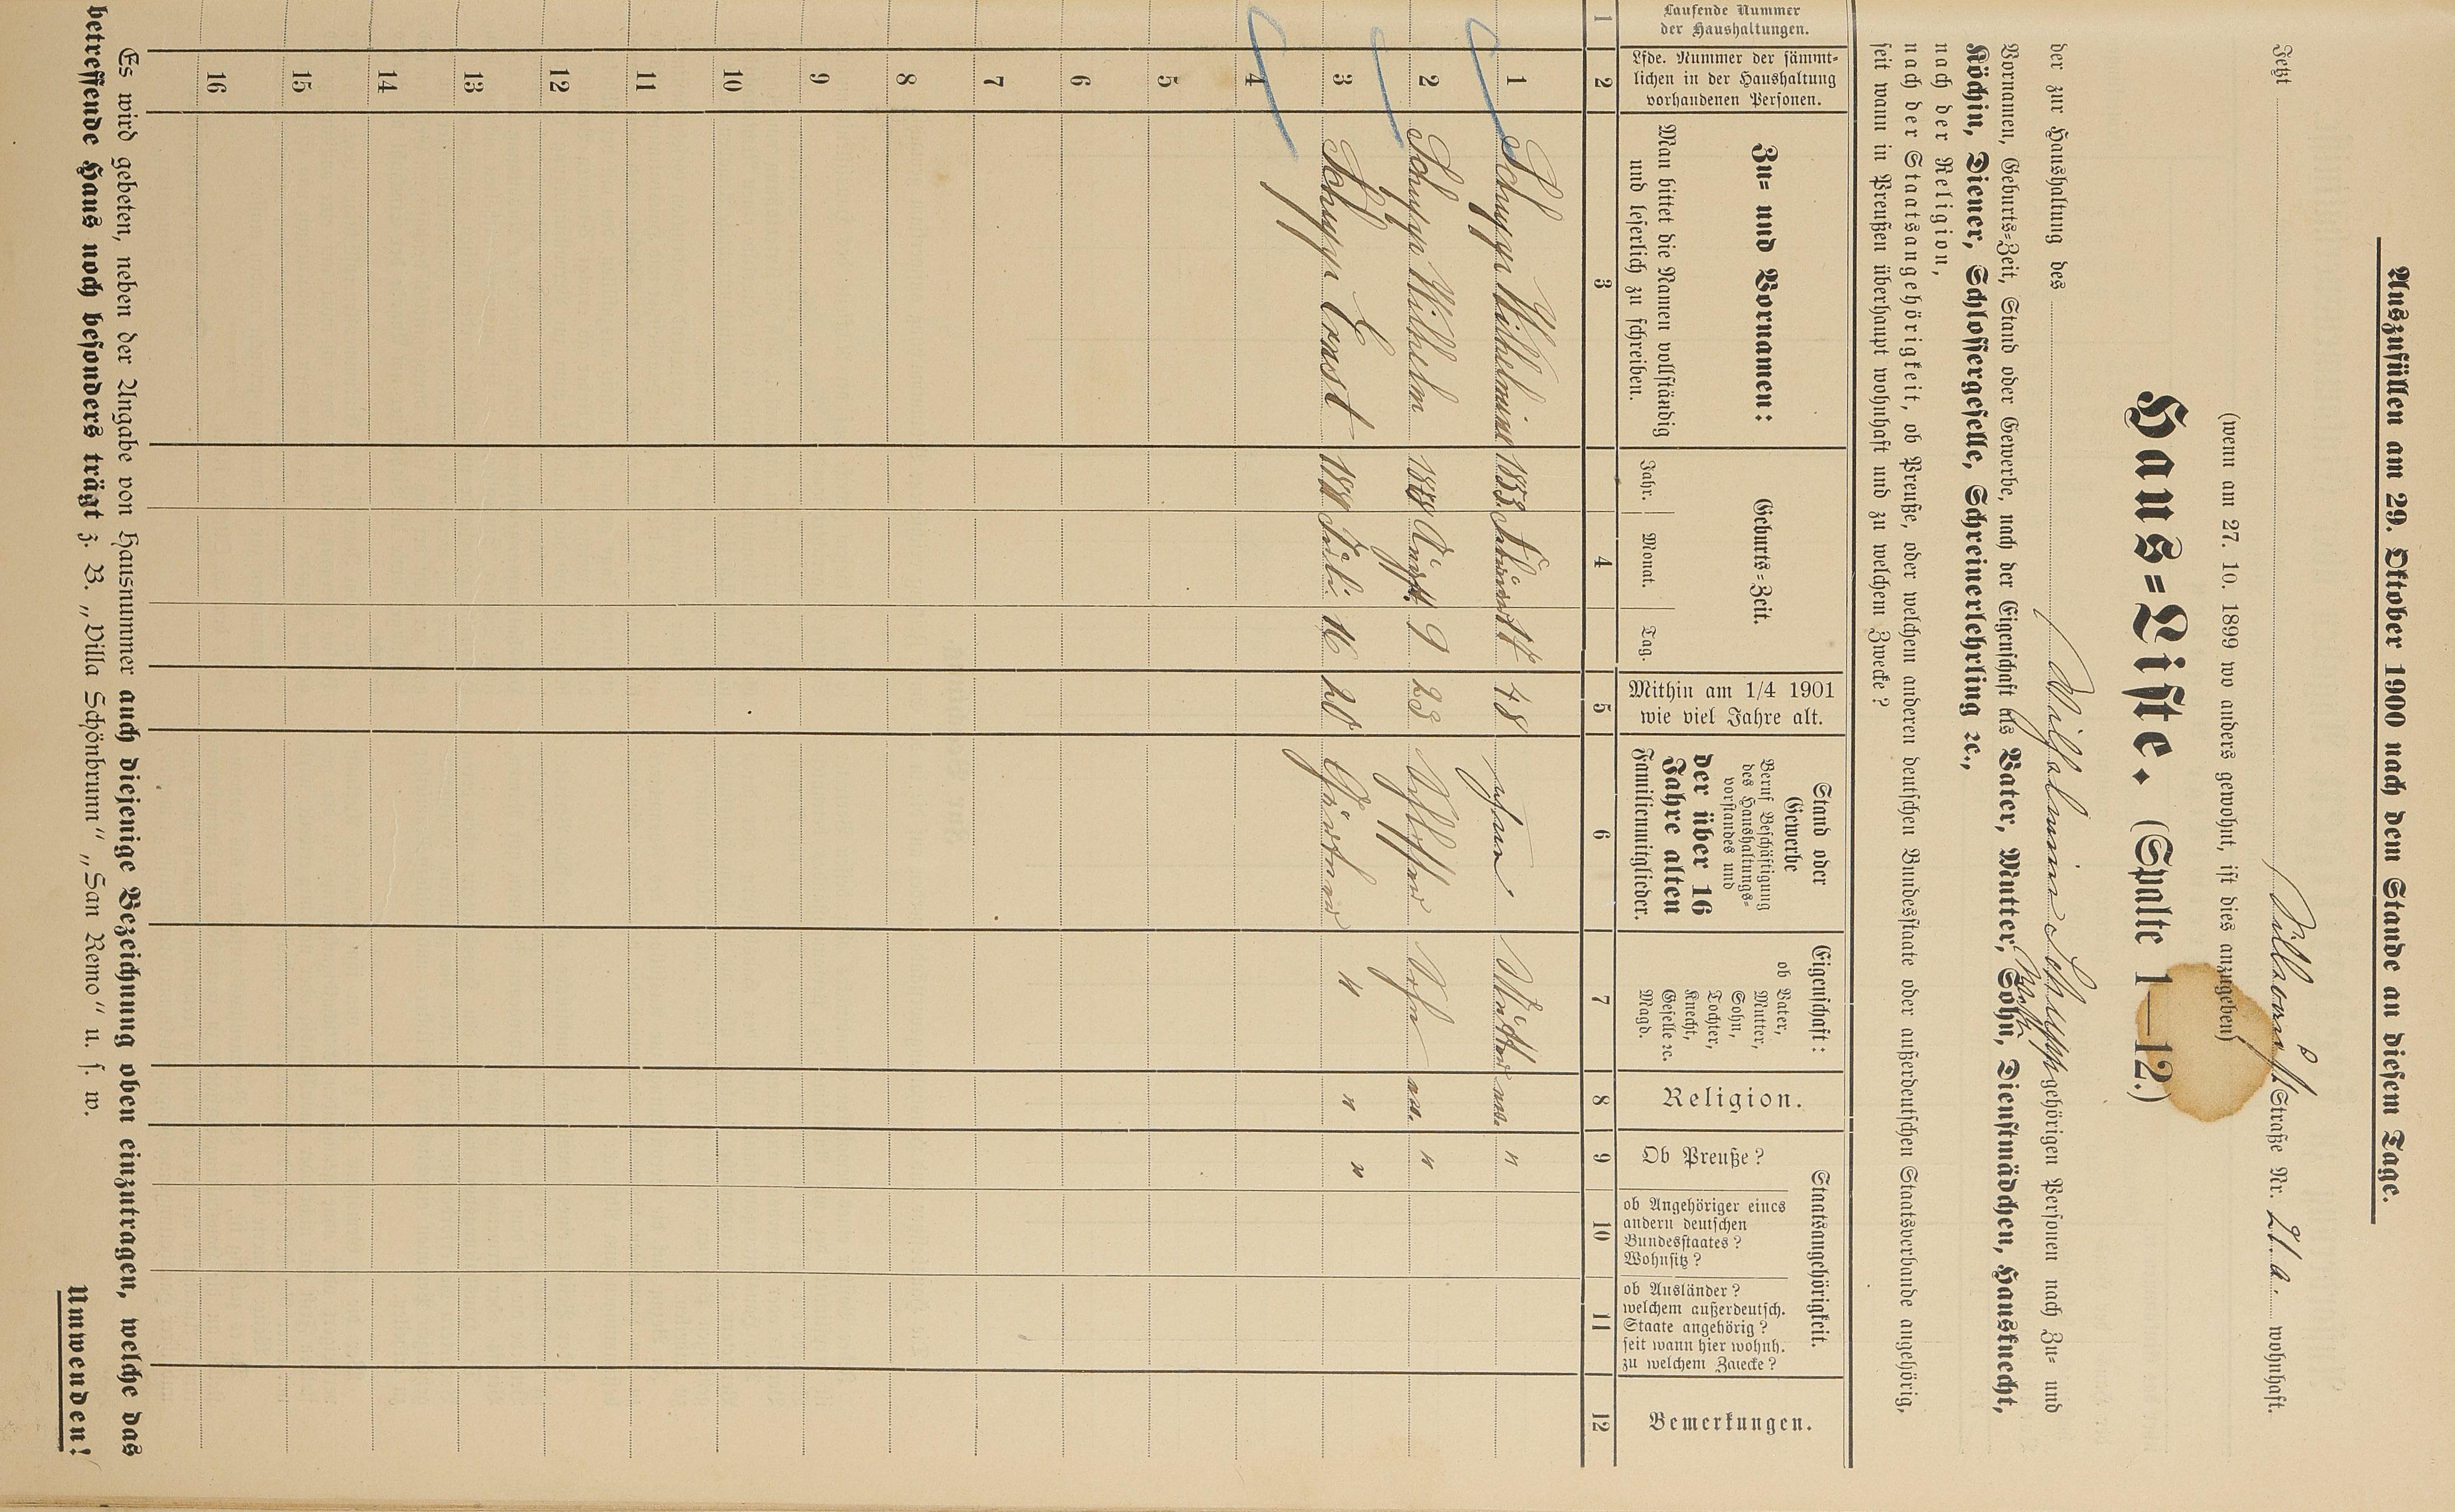 Auszufüllen am 29. Oktober 1900 nach dem Stande an diesem Tage.
Jetzt Straße Nr. 21 a. wohnhaft.
(wenn am 27. 10. 1899 wo anders gewohnt, ist dies anzugeben)
Haus=Liste. (Spalte 1—12.)
der zur Haushaltung des Wilhelmine Schupp gehörigen Personen nach Zu= und
Vornamen, Geburts=Zeit, Stand oder Gewerbe, nach der Eigenschaft als Vater, Mutter, Sohn, Dienstmädchen, Hausknecht,
Köchin, Diener, Schlossergeselle, Schreinerlehrling ꝛc.,
nach der Religion,
nach der Staatsangehörigkeit, ob Preuße, oder welchem anderen deutschen Bundesstaate oder außerdeutschen Staatsverbande angehörig,
seit wann in Preußen überhaupt wohnhaft und zu welchem Zwecke?
Laufende Nummer
der Haushaltungen.
Lfde. Nummer der sämmt=
lichen in der Haushaltung
vorhandenen Personen.
Zu= und Vornamen:
Man bittet die Namen vollständig
und leserlich zu schreiben.
Geburts=Zeit.
Jahr. Monat. Tag.
Mithin am 1/4 1901
wie viel Jahre alt.
Stand oder
Gewerbe
Beruf Beschäftigung
des Haushaltungs=
vorstandes und
der über 16
Jahre alten
Familienmitglieder.
Eigenschaft:
ob Vater,
Mutter,
Sohn,
Tochter,
Knecht,
Geselle ꝛc.
Magd.
Religion.
Staatsangehörigkeit.
Ob Preuße?
ob Angehöriger eines
andern deutschen
Bundesstaates?
Wohnsitz?
ob Ausländer?
welchem außerdeutsch.
Staate angehörig?
seit wann hier wohnh.
zu welchem Zwecke?
Bemerkungen.
1 2 3 4 5 6 7 8 9 10 11 12
1 Schupp Wilhelmine 1853 48 Mutter "
2 Schupp Wilhelm 1878 August 9 23 Schlosser Sohn "
3 Schupp Ernst Juli 16 20 Gärtner " " "
4
5
6
7
8
9
10
11
12
13
14
15
16
Es wird gebeten, neben der Angabe von Hausnummer auch diejenige Bezeichnung oben einzutragen, welche das
betreffende Haus noch besonders trägt z. B. „Villa Schönbrunn“ „San Remo“ u. s. w.
Umwenden!